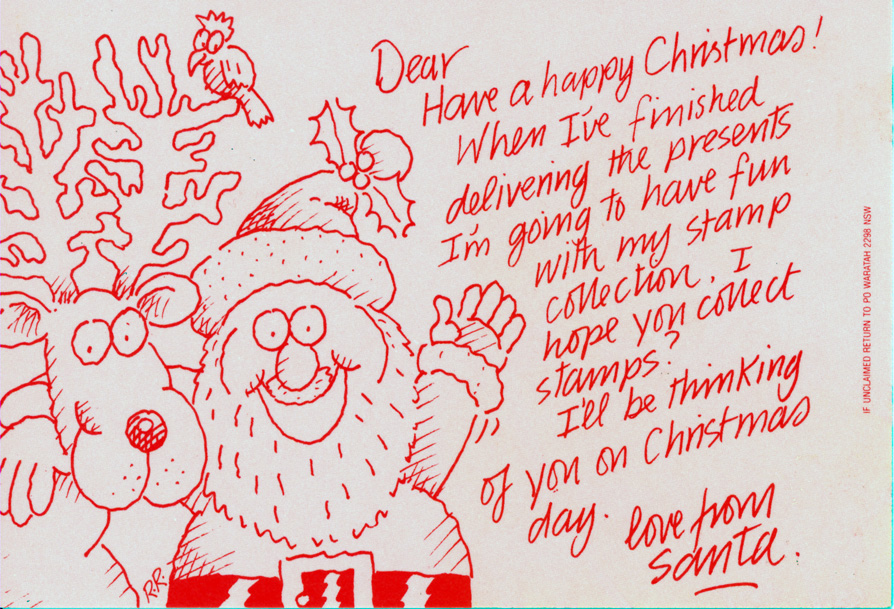 Dear
Have a happy Christmas!
When I've finished
delivering the presents
I'm going to have fun
with my stamp
collection. I
hope you collect
stamps?
I'll be thinking
of you on Christmas
day.
love from
Santa.
R.R.
IF UNCLAIMED RETURN TO PO WARATAH 2298 NSW